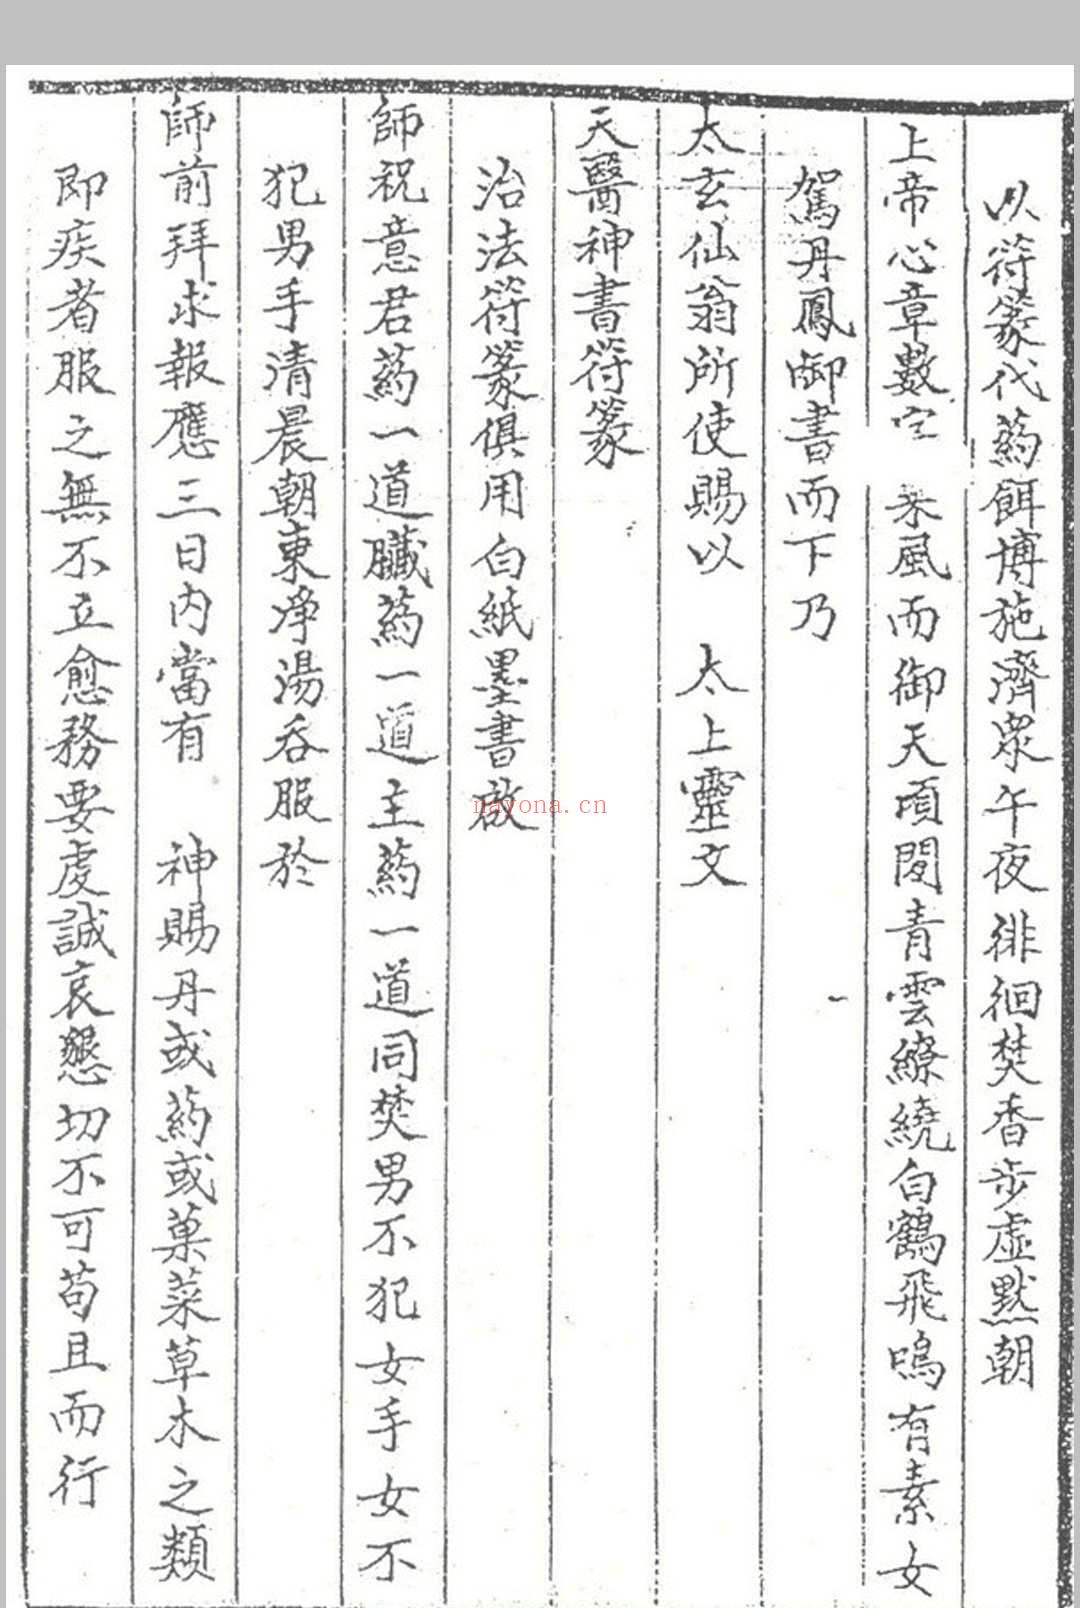 以符篆代葯餌博施濟衆午夜徘徊焚香步虛默朝
上帝心章數 风而御天頃間青雲繚繞白鶴飛鳴有素女
駕丹鳳御書而下乃
太玄仙翁所使賜以 太上靈文
天醫神書符篆
治法符篆俱用白紙墨書啟
師祝意君葯一道臟葯一道主葯一道同焚男不犯女手女不
犯男手清晨朝東净湯吞服於
師前拜求報應三日内當有 神賜丹或葯或菓菜草木之類
即疾者服之無不立愈務要虔誠哀懇切不可苟且而行
nayona.cn